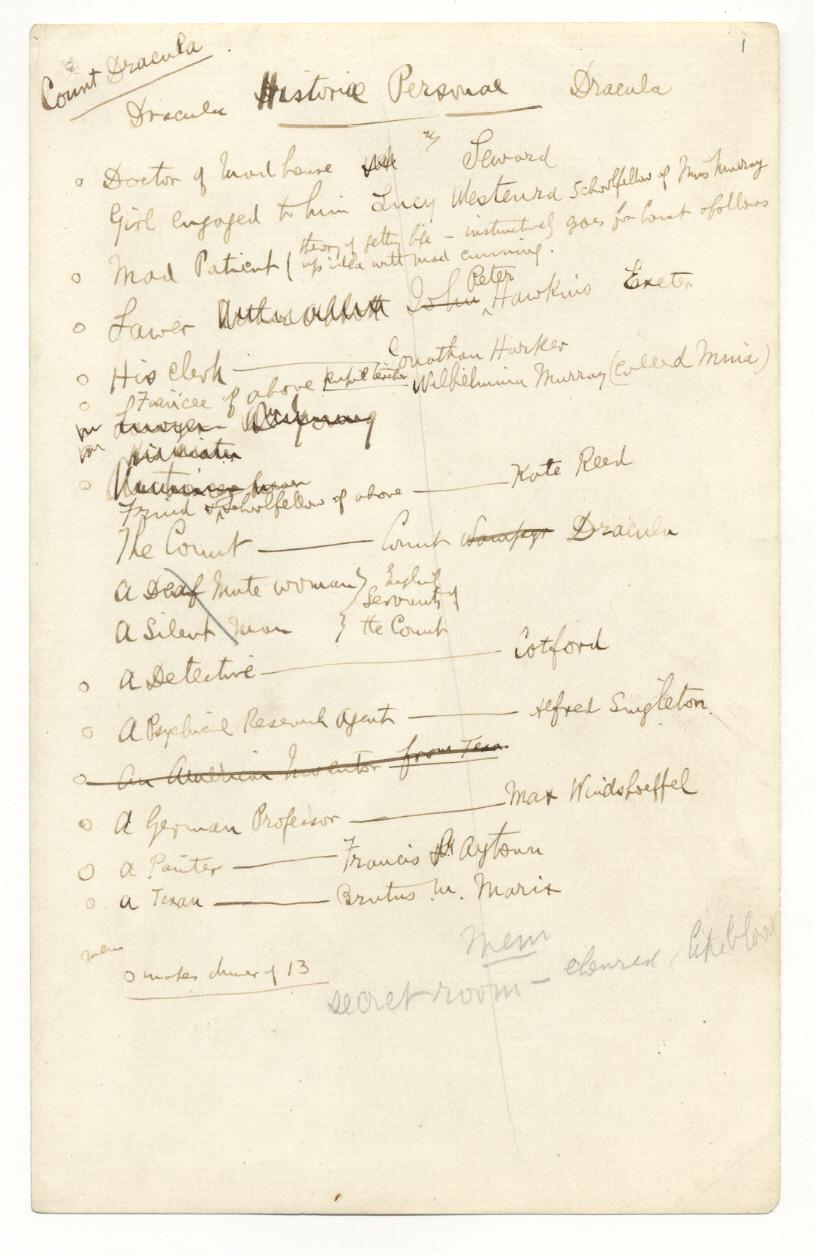 1
Count Dracula
Dracula Historiæ Personae Dracula
Doctor of Mad house Seward
Girl engaged to him Lucy Westenra Schoolfellow of Miss Murray
Mad Patient (theory of getting life – instinctively goes for Count & follows
up idea with mad cunning.
Lawer John Peter Hawkins Exeter
His clerk — Jonathan Harker
Fiancée of above pupil teacher Wilhelmina Murray (called Mina)
Lawyer
Friend & Schoolfellow of above — Kate Reed
The Count — Count Wampyr Dracula
A Deaf Mute woman } English
Servants of
A Silent Man } the Count
A Detective — Cotford
A Psychical Research Agent — Alfred Singleton
An American Inventor from Texas
A German Professor — Max Windshoeffel
A Painter — Francis Aytown
A Texan — Brutus M. Marix
mem
o makes dinner of 13
Mem
secret room – coloured like blood